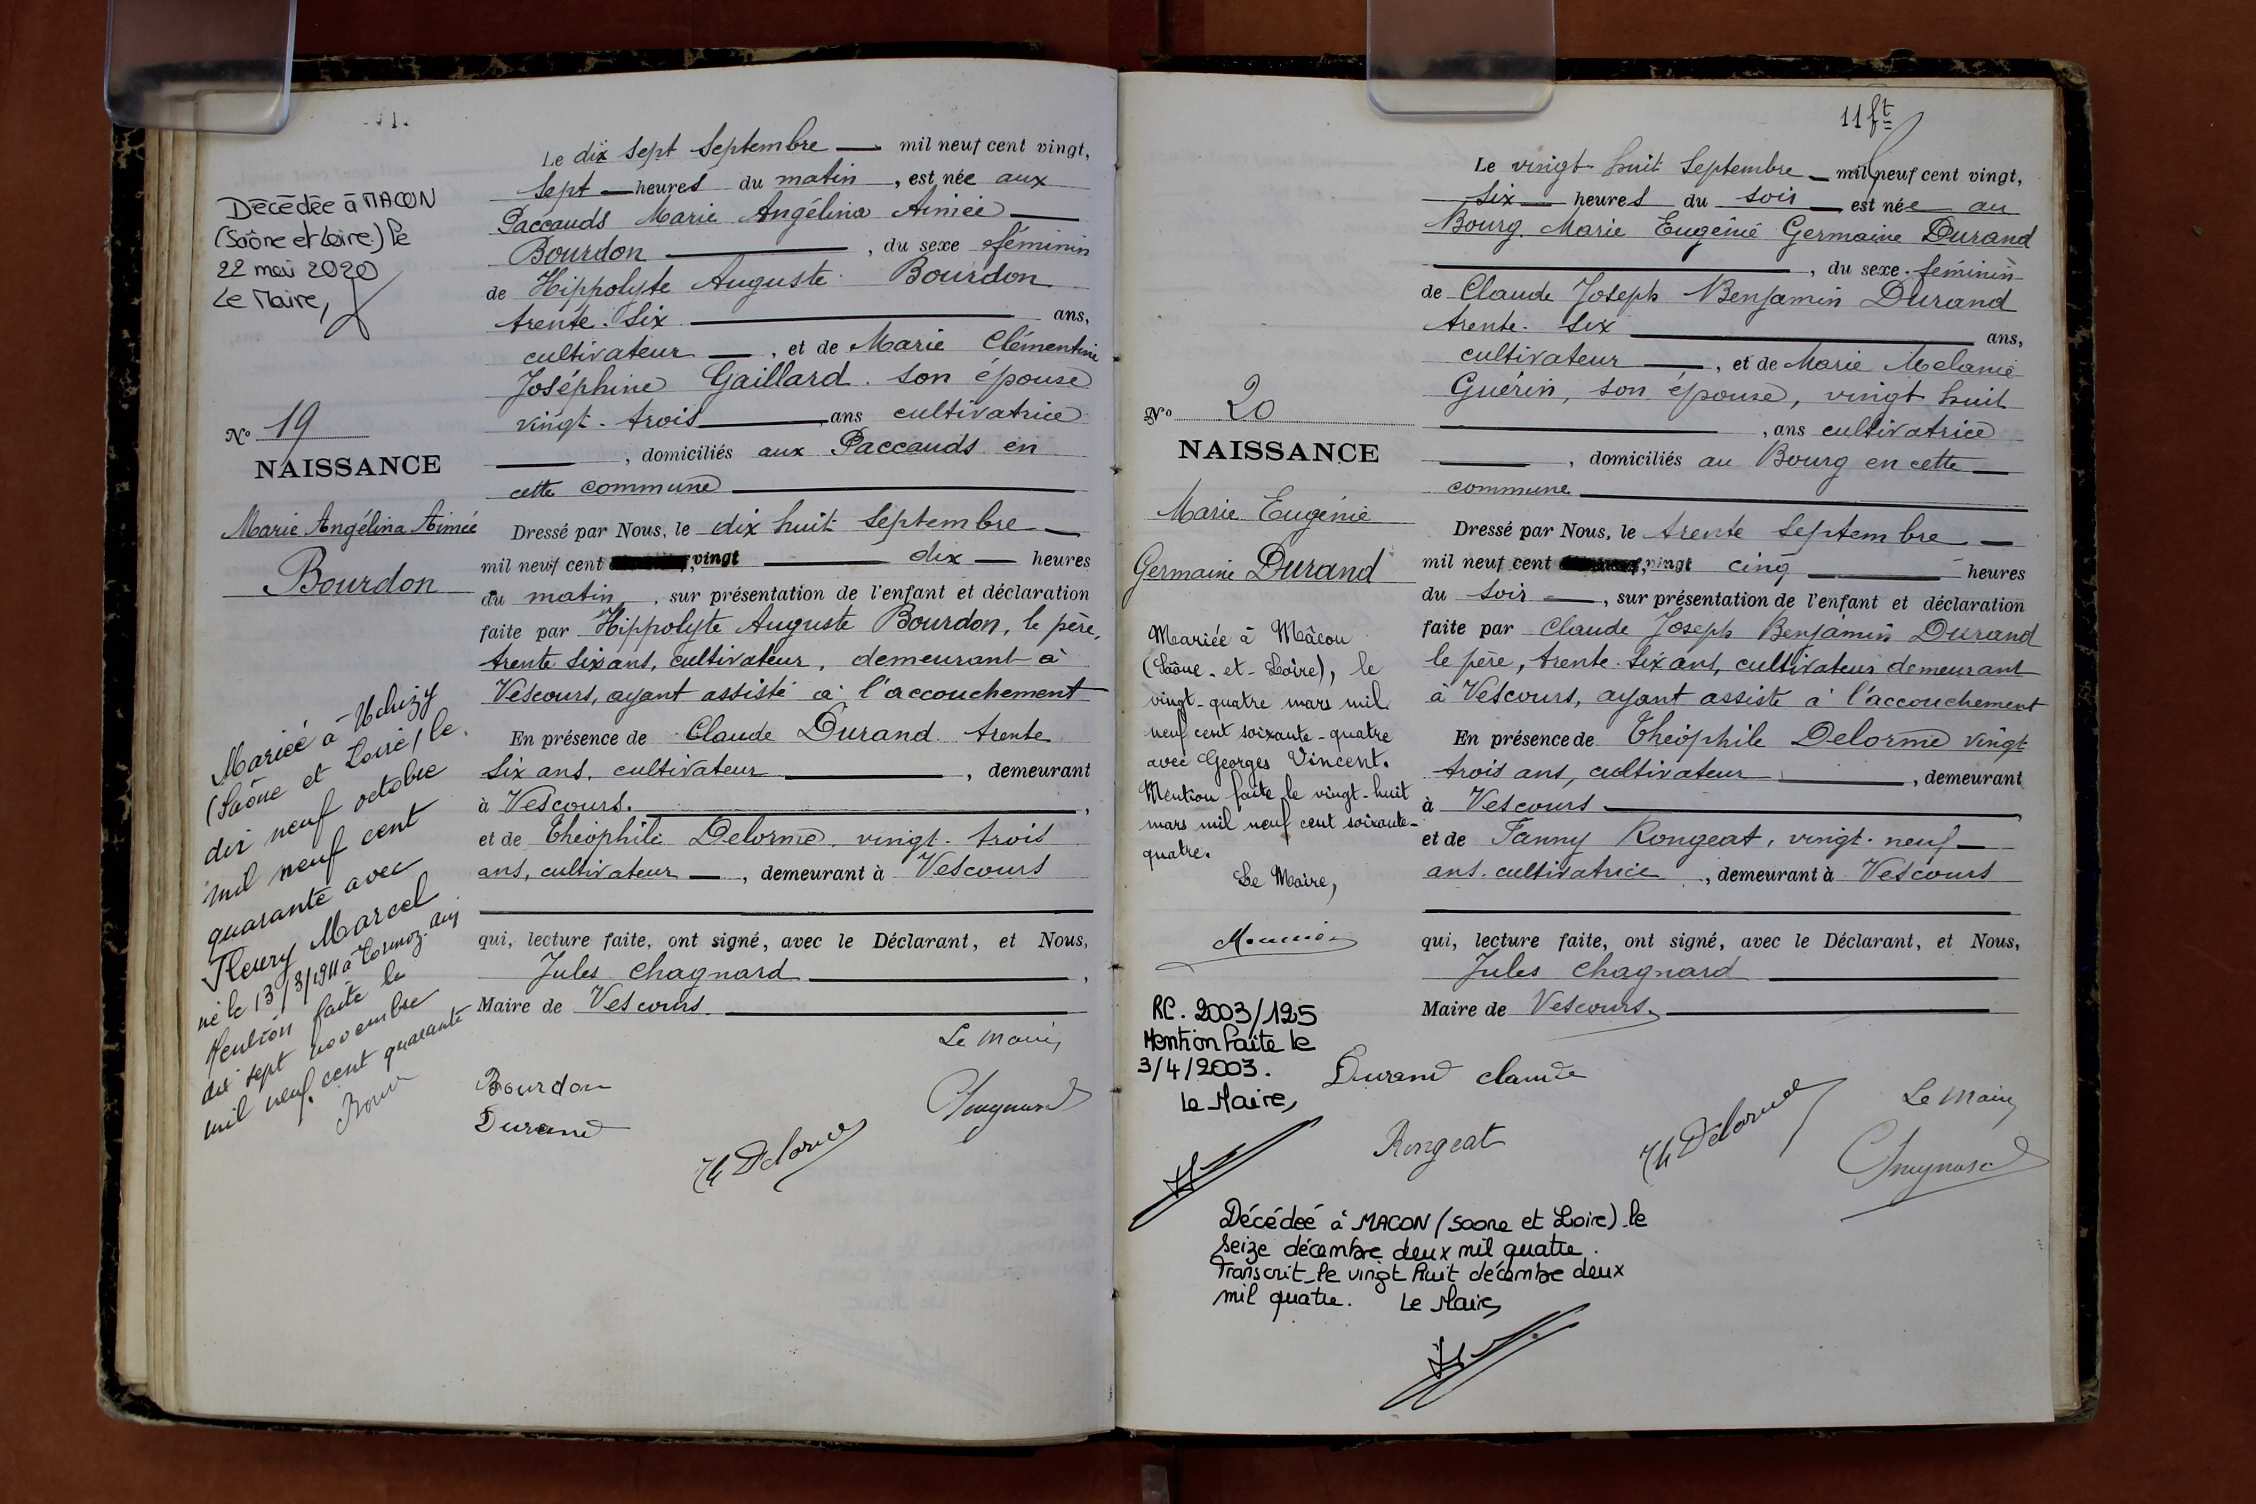 Décédée à MACON
(Saône et Loire) le
22 mai 2020
Le Maire,
N° 19
NAISSANCE
Marie Angélina Aimée
Bourdon
Mariée à Uchizy
(Saône et Loire) le
dix neuf octobre
mil neuf cent
quarante avec
Fleury Marcel
né le 13/3/1911 à Cormoz. Ain
Mention faite le
dix sept novembre
mil neuf cent quarante
Le dix sept Septembre mil neuf cent vingt,
sept heures du matin, est née aux
Paccauds Marie Angélina Aimée
Bourdon, du sexe féminin
de Hippolyte Auguste Bourdon
trente-six ans,
cultivateur, et de Marie Clémentine
Joséphine Gaillard. son épouse
vingt-trois ans cultivatrice
, domiciliés aux Paccauds en
cette commune
Dressé par Nous, le dix huit Septembre
mil neuf cent vingt dix heures
du matin, sur présentation de l'enfant et déclaration
faite par Hippolyte Auguste Bourdon, le père,
trente six ans, cultivateur, demeurant à
Vescours, ayant assisté à l'accouchement
En présence de Claude Durand trente
six ans, cultivateur, demeurant
à Vescours.,
et de Théophile Delorme, vingt-trois
ans, cultivateur, demeurant à Vescours
qui, lecture faite, ont signé, avec le Déclarant, et Nous,
Jules Chagnard,
Maire de Vescours.
Le Maire,
Bourdon
Durand
Th Delorme
Chagnard
11 ft
N° 20
NAISSANCE
Marie Eugénie
Germaine Durand
Mariée à Mâcon
(Saône-et-Loire), le
vingt-quatre mars mil
neuf cent soixante-quatre
avec Georges Vincent.
Mention faite le vingt-huit
mars mil neuf cent soixante-
quatre.
Le Maire,
RC. 2003/125
Mention faite le
3/4/2003.
Le Maire,
Le vingt huit Septembre mil neuf cent vingt,
six heures du soir est née au
Bourg Marie Eugénie Germaine Durand
, du sexe féminin
de Claude Joseph Benjamin Durand
trente-six ans,
cultivateur, et de Marie Melanie
Guérin, son épouse, vingt huit
, ans cultivatrice
, domiciliés au Bourg en cette
commune
Dressé par Nous, le trente Septembre
mil neuf cent vingt cinq heures
du soir, sur présentation de l'enfant et déclaration
faite par Claude Joseph Benjamin Durand
le père, trente-six ans, cultivateur demeurant
à Vescours, ayant assisté à l'accouchement
En présence de Théophile Delorme vingt
trois ans, cultivateur, demeurant
à Vescours,
et de Fanny Rongeat, vingt-neuf
ans. cultivatrice, demeurant à Vescours
qui, lecture faite, ont signé, avec le Déclarant, et Nous,
Jules Chagnard
Maire de Vescours.
Durand Claude
Le Maire,
Rongeat
Th Delorme
Chagnard
Décédée à MACON (Saone et Loire) le
seize décembre deux mil quatre.
Transcrit le vingt huit décembre deux
mil quatre. Le Maire,